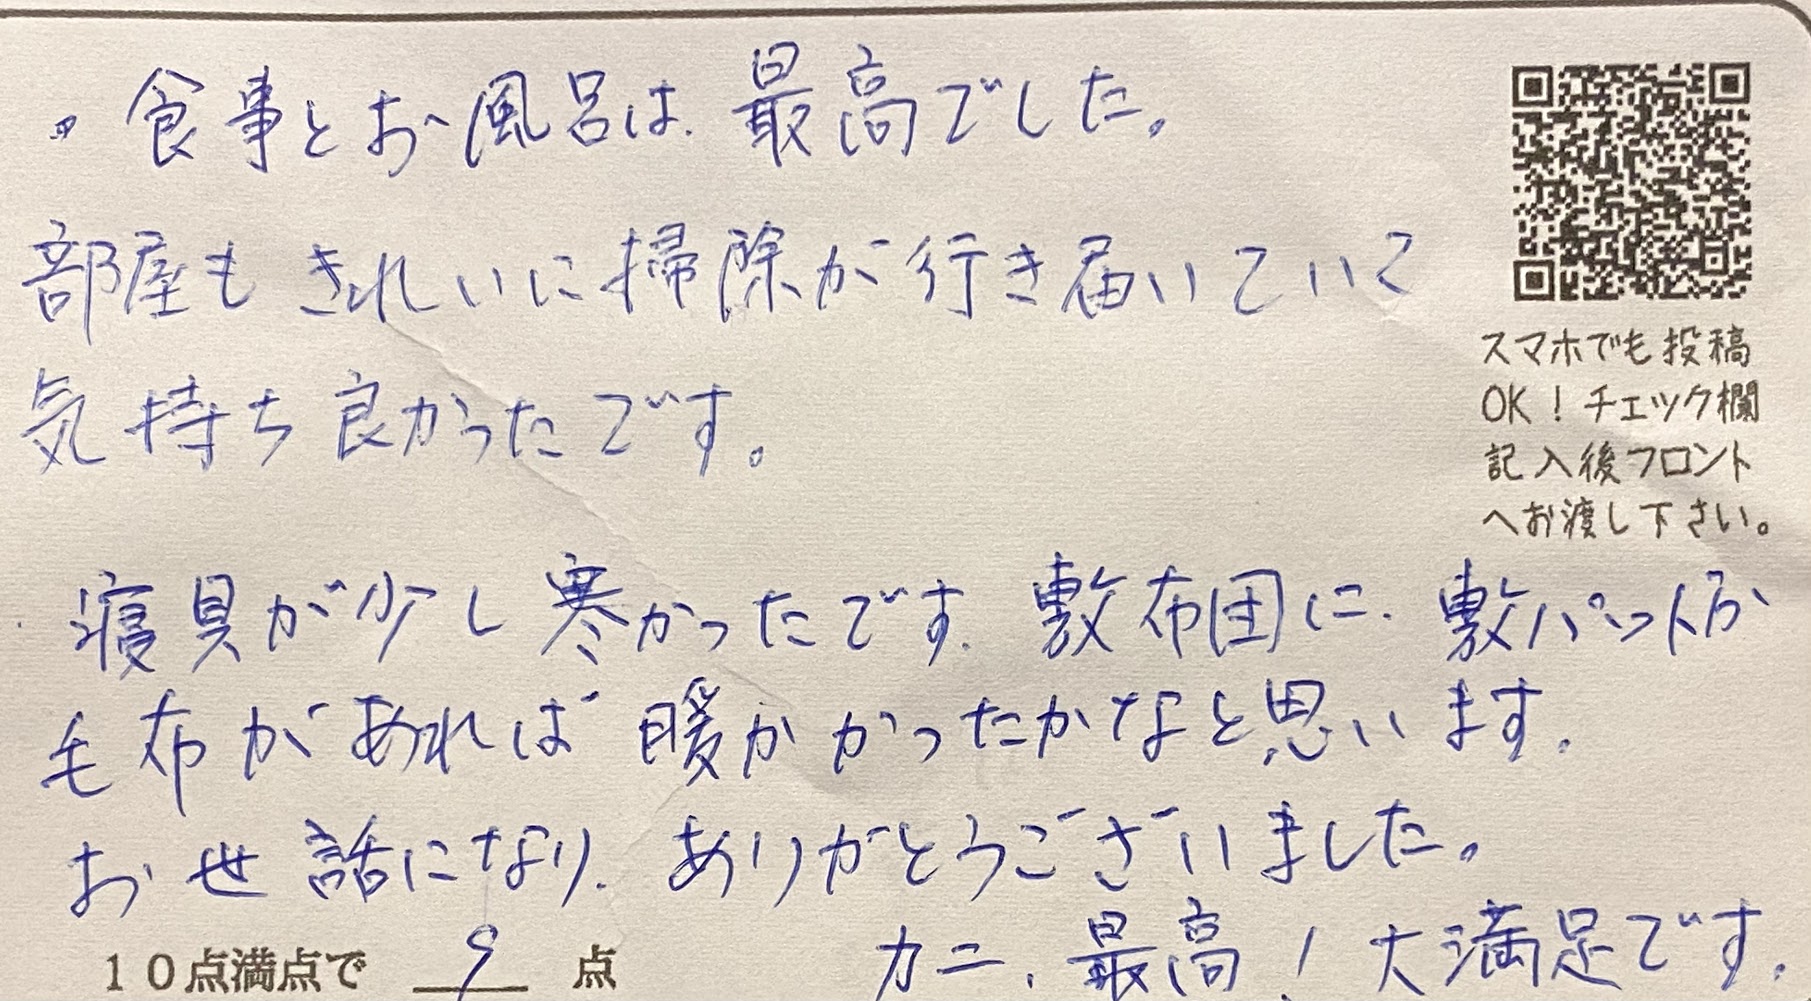 ・食事とお風呂は、最高でした。
部屋もきれいに掃除が行き届いていて
気持ち良かったです。
スマホでも投稿
OK!チェック欄
記入後フロント
へお渡し下さい。
寝具が少し寒かったです。敷布団に、敷パットか
毛布があれば暖かかったかなと思います。
お世話になり、ありがとうございました。
10点満点で 9 点
カニ、最高!大満足です。